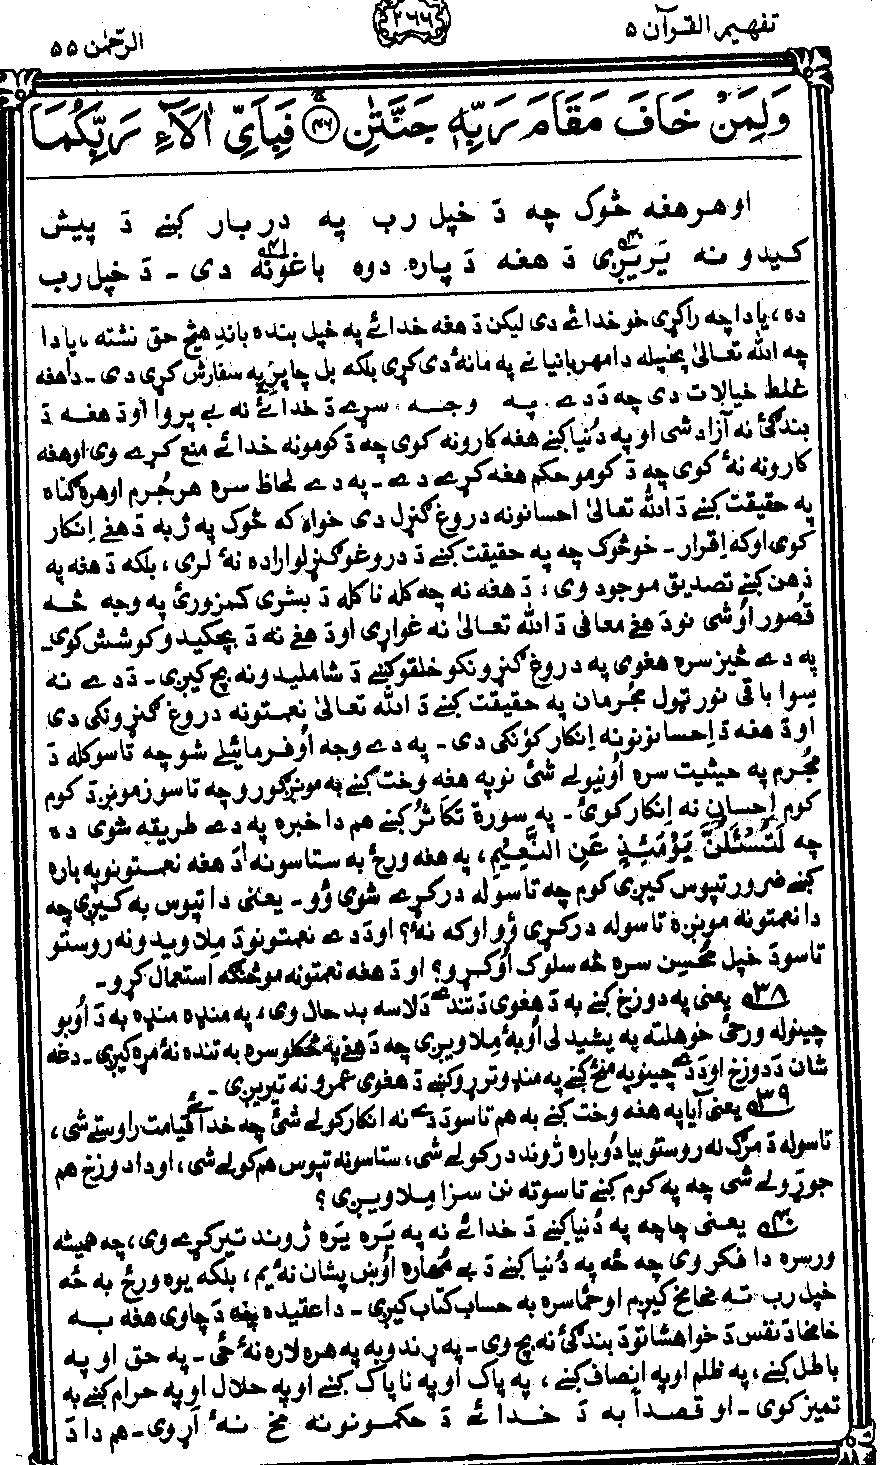 تفهیم القرآن ۵
۲۶۶
الرّحمٰن ۵۵
وَلِمَنْ خَافَ مَقَامَ رَبِّهٖ جَنَّتٰنِ ﴿۴۶﴾ فَبِاَیِّ اٰلَآءِ رَبِّكُمَا
او هر هغه څوک چه دَ خپل رب په در بار کښے دَ پیش
کیدو نه یَریږی دَ هغه دَ پاره دوه باغونه دی - دَ خپل رب
ده، یا دا چه راکړی خو خدائے دی لیکن دَ هغه خدائے په خپل بنده باندِ هیڅ حق نشته، یا دا
چه الله تعالیٰ پخپله دا مهربانیانے په مانهٔ دی کړی بلکه بل چا پرِ په سفارش کړی دی - دا هغه
غلط خیالات دی چه دَ دے په وجه سړے دَ خدائے نه بے پروا او دَ هغه دَ
بندګئ نه آزاد شی او په دُنیا کښے هغه کارونه کوی چه دَ کومو نه خدائے منع کړے وی او هغه
کارونه نهٔ کوی چه دَ کومو حکم هغه کړے دے - په دے لحاظ سره هر جُرم او هره ګناه
په حقیقت کښے دَ الله تعالیٰ احسانونه دروغ ګنړل دی خواه که څوک په ژبه دَ هغے اِنکار
کوی او که اِقرار - خو څوک چه په حقیقت کښے دَ دروغو ګنړلو اراده نهٔ لری، بلکه دَ هغه په
ذهن کښے تصدیق موجود وی، دَ هغه نه چه کله نا کله دَ بشری کمزورئ په وجه څه
قُصُور اوشی نو دَ هغے معافی دَ الله تعالیٰ نه غواړی او دَ هغے نه دَ بچکیدو کوشش کوی-
په دے څیز سره هغوی په دروغ ګنړونکو خلقو کښے دَ شاملیدو نه بچ کیږی - دَ دے نه
سِوا باقی نور ټول مجُرمان په حقیقت کښے دَ الله تعالیٰ نعمتونه دروغ ګنړونکی دی
او دَ هغه دَ اِحسانونو نه اِنکار کوُنکی دی - په دے وجه اوفرمائیلے شو چه تاسو کله دَ
مجُرم په حیثیت سره اُونیولے شئ نو په هغه وخت کښے به مونږ ګورو چه تاسو زمونږ دَ کوم
کوم اِحسان نه اِنکار کوئ - په سورة تکاثُر کښے هم دا خبره په دے طریقه شوی ده
چه لَتُسْئَلُنَّ یَوْمَئِذٍ عَنِ النَّعِیْمِ، په هغه ورځ به ستاسو نه دَ هغه نعمتونو په باره
کښے ضرور تپوس کیږی کوم چه تاسو له درکړے شوی وُو - یعنی دا تپوس به کیږی چه
دا نعمتونه مونږه تاسو له درکړی وُو او که نهٔ؟ او دَ دے نعمتونو دَ مِلاویدو نه روستو
تاسو دَ خپل محُسِن سره څه سلوک اُوکړو؟ او دَ هغه نعمتونه مو څنګه استعمال کړو-
۳۸؎ یعنی په دوزخ کښے به دَ هغوی دَ تندے دَ لاسه بد حال وی، په منډه منډه به دَ اُوبو
چینو له ورځی خو هلته په یشیدلی اُوبهٔ مِلاویږی چه دَ هغے په څکلو سره به تنده نهٔ مړه کیږی - دغه
شان دَ دوزخ او دَ دے چینو په منځ کښے په منډو تړرو کښے دَ هغوی عمرونه تیریږی -
۳۹؎ یعنی آیا په هغه وخت کښے به هم تاسو دَ دے نه انکار کولے شئ چه خدائے قیامت راوستے شی،
تاسو له دَ مرګ نه روستو بیا دُوباره ژوند درکولے شی، ستاسو نه تپوس هم کولے شی، او دا دوزخ هم
جوړولے شی چه په کوم کښے تاسو ته نن سزا مِلاویږی؟
۴۰؎ یعنی چا چه په دُنیا کښے دَ خدائے نه په یَره یَره ژوند تیر کړے وی، چه همیشه
ورسره دا فکر وی چه څه په دُنیا کښے دَ بے مُهاره اُوښ پشان نهٔ یم، بلکه یوه ورځ به څه
خپل رب ته مخامخ کیږم او ځما سره به حساب کتاب کیږی - دا عقیده چه دَ چا وی هغه به
خامخا دَ نفس دَ خواهشاتو دَ بندګئ نه بچ وی - په ړندو به په هره لاره نهٔ ځی - په حق او په
باطل کښے، په ظلم او په اِنصاف کښے، په پاک او په ناپاک کښے او په حلال او په حرام کښے به
تمیز کوی - او قصداً به دَ خدائے دَ حکمونو نه مخ نهٔ اَړوی - هم دا دَ